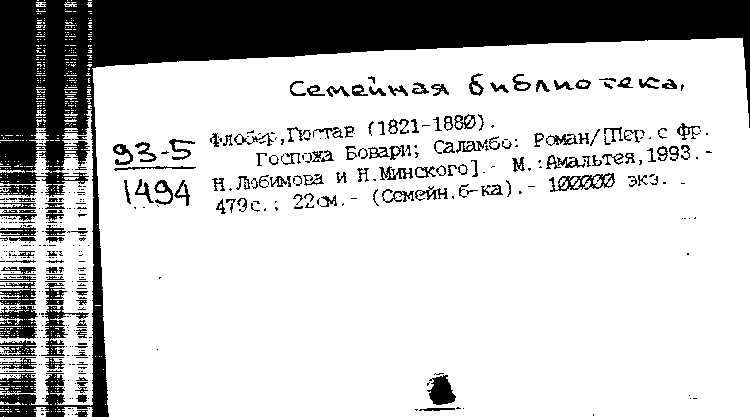 Семейная библиотека.
93-5
1494
Флобер,Гюстав (1821-1880).
Госпожа Бовари; Саламбо: Роман/[Пер.с фр.
Н.Любимова и Н.Минского].- М.:Амальтея,1993.-
479с.; 22см.- (Семейн.б-ка).- 100000 экз.